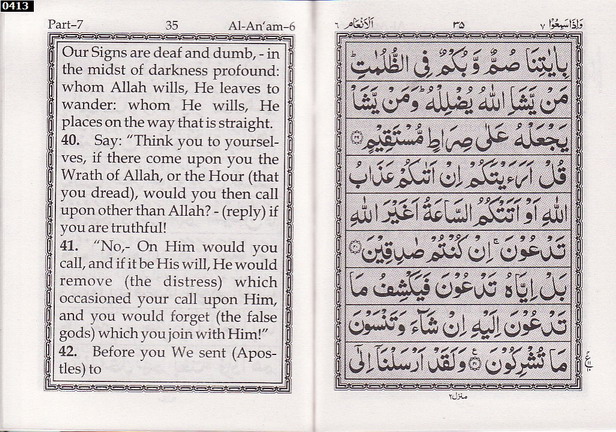 0413
Part–7 35 Al-An'am–6
Our Signs are deaf and dumb, - in
the midst of darkness profound:
whom Allah wills, He leaves to
wander: whom He wills, He
places on the way that is straight.
40. Say: "Think you to yoursel-
ves, if there come upon you the
Wrath of Allah, or the Hour (that
you dread), would you then call
upon other than Allah? - (reply) if
you are truthful!
41. "No,- On Him would you
call, and if it be His will, He would
remove (the distress) which
occasioned your call upon Him,
and you would forget (the false
gods) which you join with Him!"
42. Before you We sent (Apos-
tles) to
وَاِذَا سَمِعُوْا ٧ ٣٥ اَلْاَنْعَام ٦
بِاٰيٰتِنَا صُمٌّ وَّبُكْمٌ فِى الظُّلُمٰتِ ؕ
مَنْ يَّشَاِ اللّٰهُ يُضْلِلْهُ ؕ وَمَنْ يَّشَاْ
يَجْعَلْهُ عَلٰى صِرَاطٍ مُّسْتَقِيْمٍ ۝۳۹
قُلْ اَرَءَيْتَكُمْ اِنْ اَتٰىكُمْ عَذَابُ
اللّٰهِ اَوْ اَتَتْكُمُ السَّاعَةُ اَغَيْرَ اللّٰهِ
تَدْعُوْنَ ۚ اِنْ كُنْتُمْ صٰدِقِيْنَ ۝۴۰
بَلْ اِيَّاهُ تَدْعُوْنَ فَيَكْشِفُ مَا
تَدْعُوْنَ اِلَيْهِ اِنْ شَآءَ وَتَنْسَوْنَ
مَا تُشْرِكُوْنَ ۝۴۱ وَلَقَدْ اَرْسَلْنَآ اِلٰٓى
منزل٢